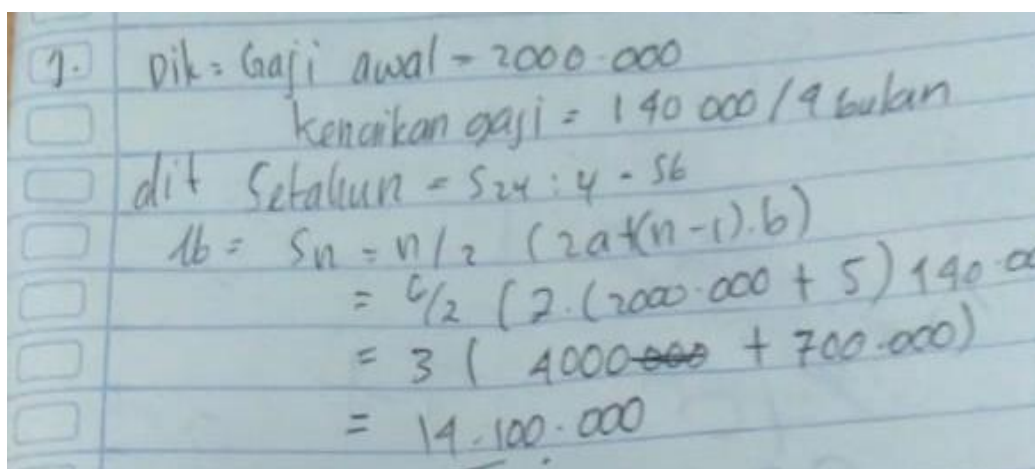 1. Dik = Gaji awal = 2000.000
Kenaikan gaji = 140 000 / 4 bulan
dit Setahun = S24 : 4 = S6
Jb = Sn = n/2 (2a+(n-1).b)
= 6/2 (2.(2000.000 + 5) 140.00
= 3 ( 4000000 + 700.000)
= 14.100.000